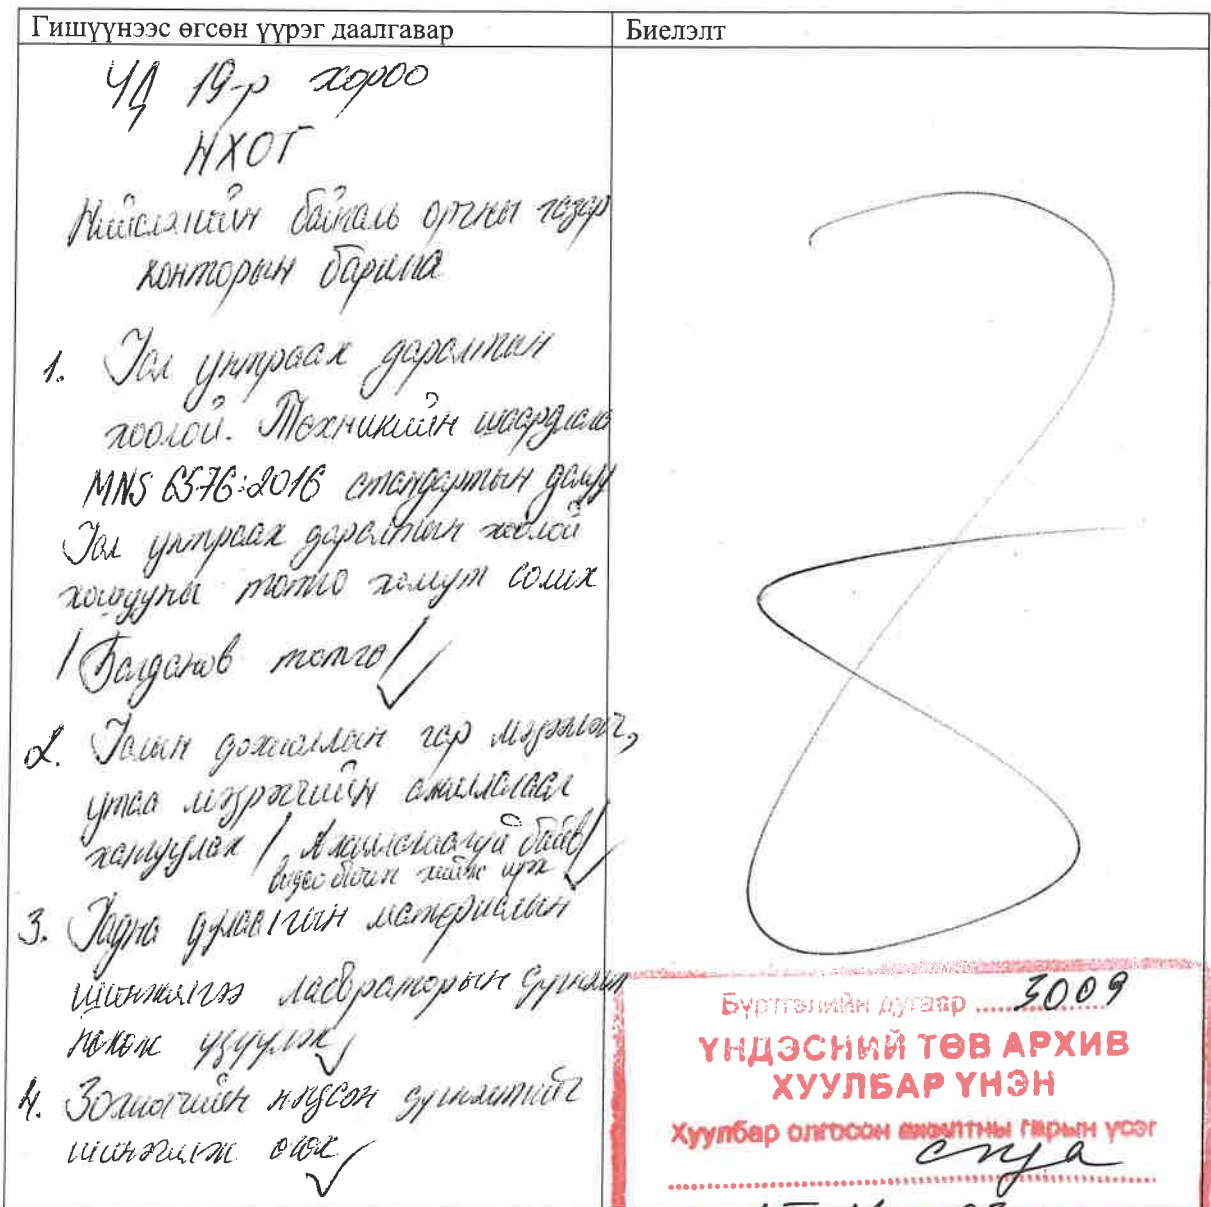 Гишүүнээс өгсөн үүрэг даалгавар
Биелэлт
ЧД 19-р хороо
НХОГ
Нийслэлийн байгаль орчны газар
конторын барилга
1. Гал унтраах даралтын
хоолой. Техникийн шаардлага
MNS 6576:2016 стандартын дагуу
Гал унтраах даралтын хоолой
хошууны толгой хомут солих
/Богданов толгой/
2. Галын дохиоллын гар мэдээлэгч,
утаа мэдрэгчийн ажиллагааг
хангуулах / Ажиллагаагүй байв/
видео бичлэг хийж ирэх
3. Гадна дулаалгын материалын
шинжилгээ лабораторын дүгнэлт
нөхөж үзүүлэх
4. Зохиогчийн нэгдсэн дүгнэлтийг
шинэчилж өгөх
Бүртгэлийн дугаар 3009
ҮНДЭСНИЙ ТӨВ АРХИВ
ХУУЛБАР ҮНЭН
Хуулбар олгосон ажилтны гарын үсэг